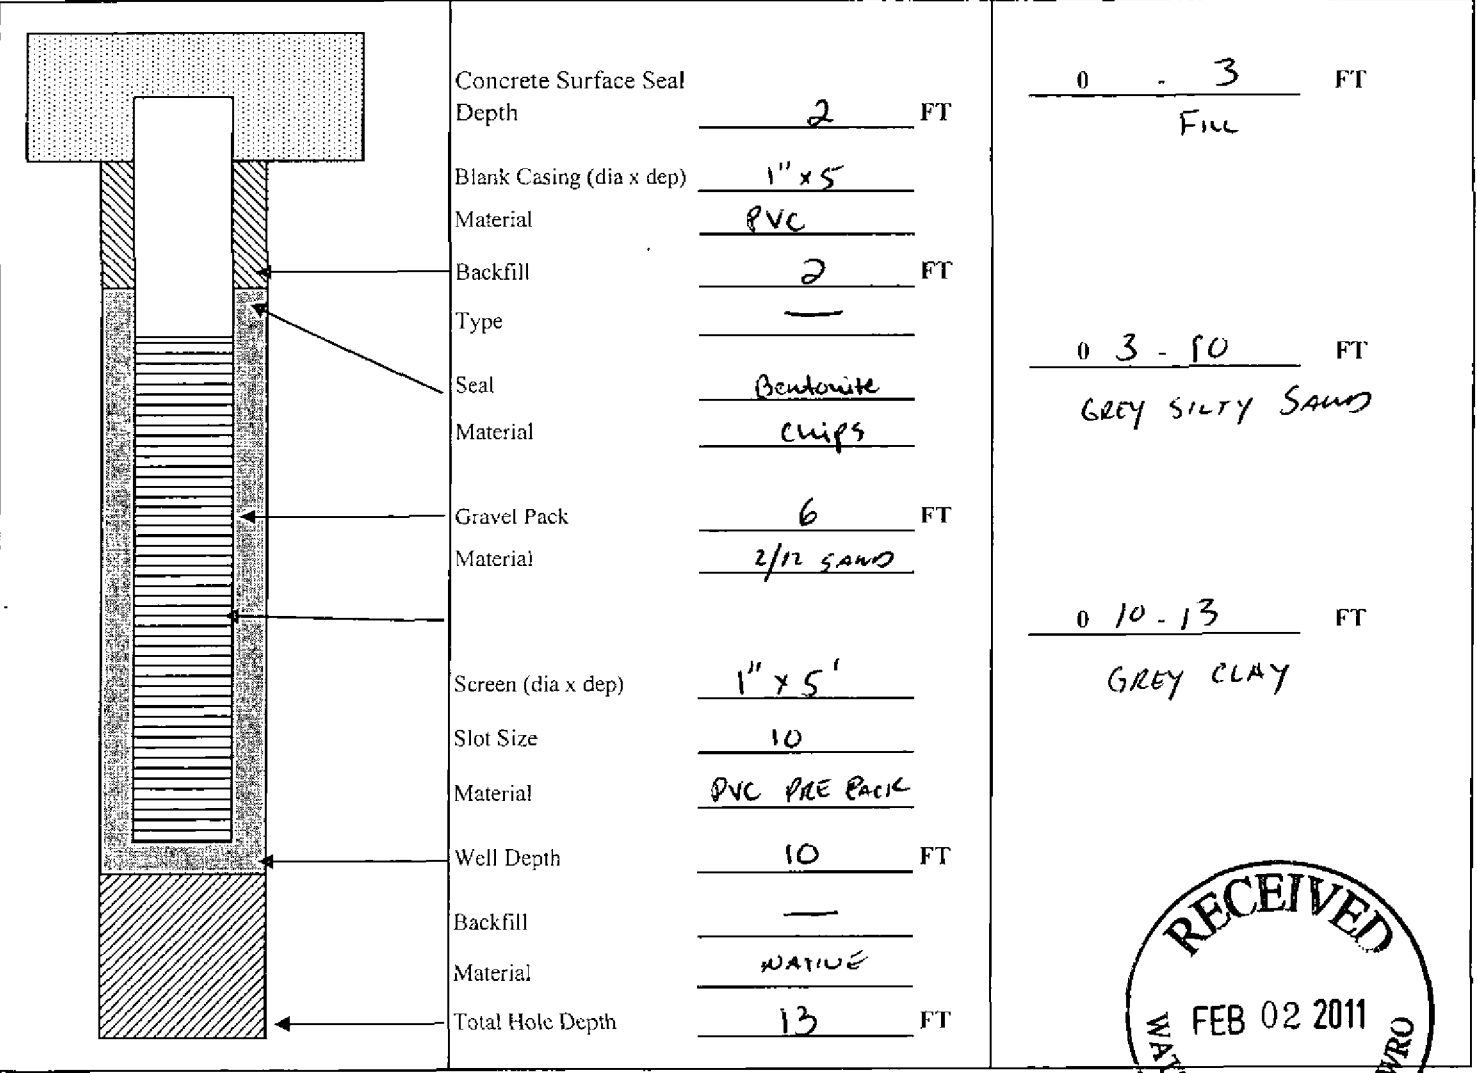 Concrete Surface Seal
Depth 2 FT
Blank Casing (dia x dep) 1" x 5
Material PVC
Backfill 2 FT
Type —
Seal Bentonite
Material Chips
Gravel Pack 6 FT
Material 2/12 SAND
Screen (dia x dep) 1" x 5'
Slot Size 10
Material PVC PRE PACK
Well Depth 10 FT
Backfill —
Material NATIVE
Total Hole Depth 13 FT
0 - 3 FT
FILL
0 3 - 10 FT
GREY SILTY SAND
0 10 - 13 FT
GREY CLAY
RECEIVED
FEB 02 2011